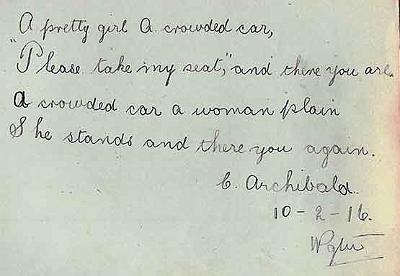 A pretty girl A crowded car,
"Please take my seat," and there you are.
A crowded car a woman plain
She stands and there you again.
C. Archibald.
10-2-16.